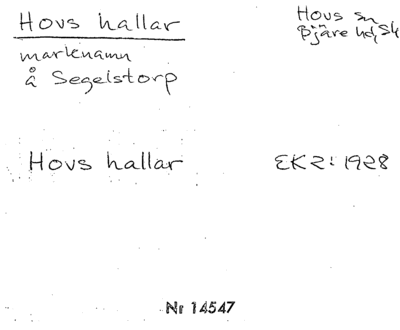 Hovs hallar
Hovs sn
Bjäre hd, Sk
marknamn
å Segelstorp
Hovs hallar
EK2: 1928
Nr 14547